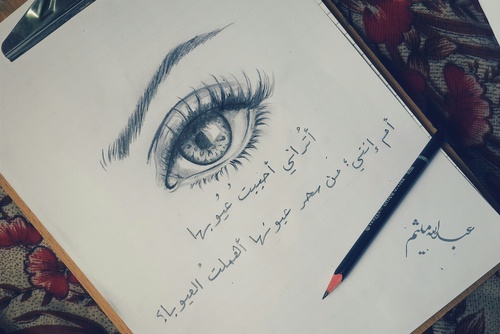 أتُراني أحببت عُيُوبها
أم وإنّني؛ من سحر عيونها أهملت العيوبا؟
عبدالله ميثم